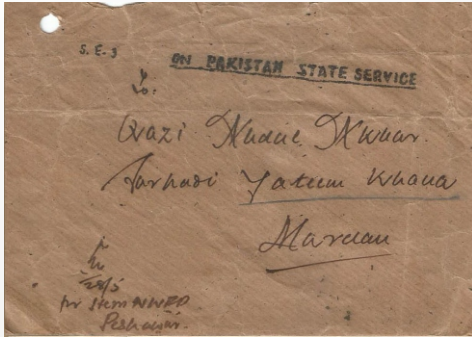 S. E. 3
ON PAKISTAN STATE SERVICE
To.
Qazi Abdul
Sarhadi Yateem Khana
Mardan
28/5
Peshawar.